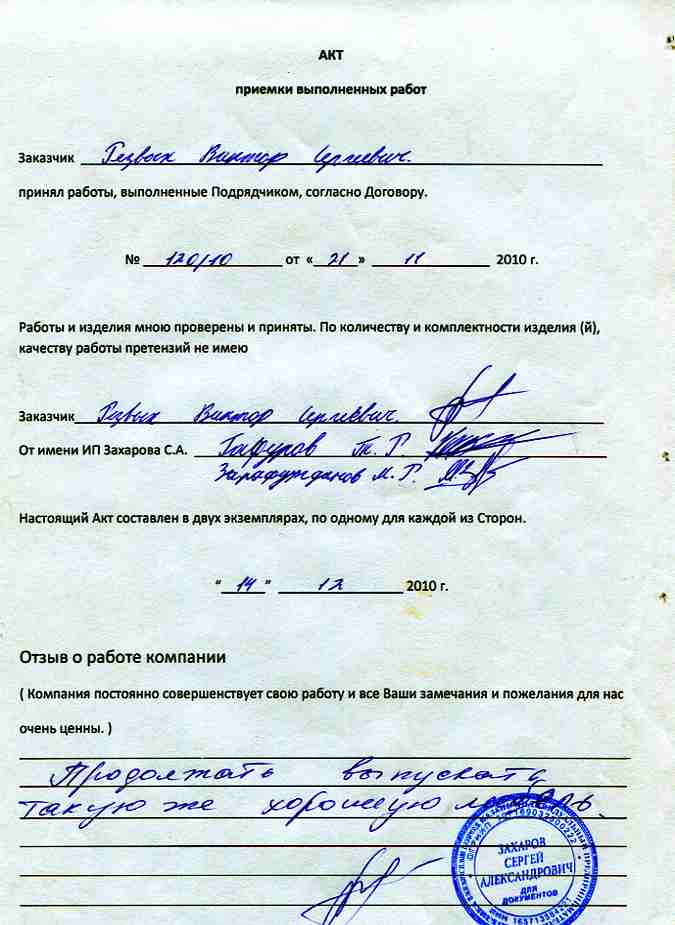 АКТ
приемки выполненных работ
Заказчик Резвых Виктор Сергеевич.
принял работы, выполненные Подрядчиком, согласно Договору.
№ 120/10 от « 21 » 11 2010 г.
Работы и изделия мною проверены и приняты. По количеству и комплектности изделия (й),
качеству работы претензий не имею
Заказчик Резвых Виктор Сергеевич.
От имени ИП Захарова С.А. Гафуров Т. Г.
М. Г.
Настоящий Акт составлен в двух экземплярах, по одному для каждой из Сторон.
" 14 " 12 2010 г.
Отзыв о работе компании
( Компания постоянно совершенствует свою работу и все Ваши замечания и пожелания для нас
очень ценны. )
Продолжать выпускать
такую же хорошую мебель.
ЗАХАРОВ
СЕРГЕЙ
АЛЕКСАНДРОВИЧ
ДЛЯ
ДОКУМЕНТОВ